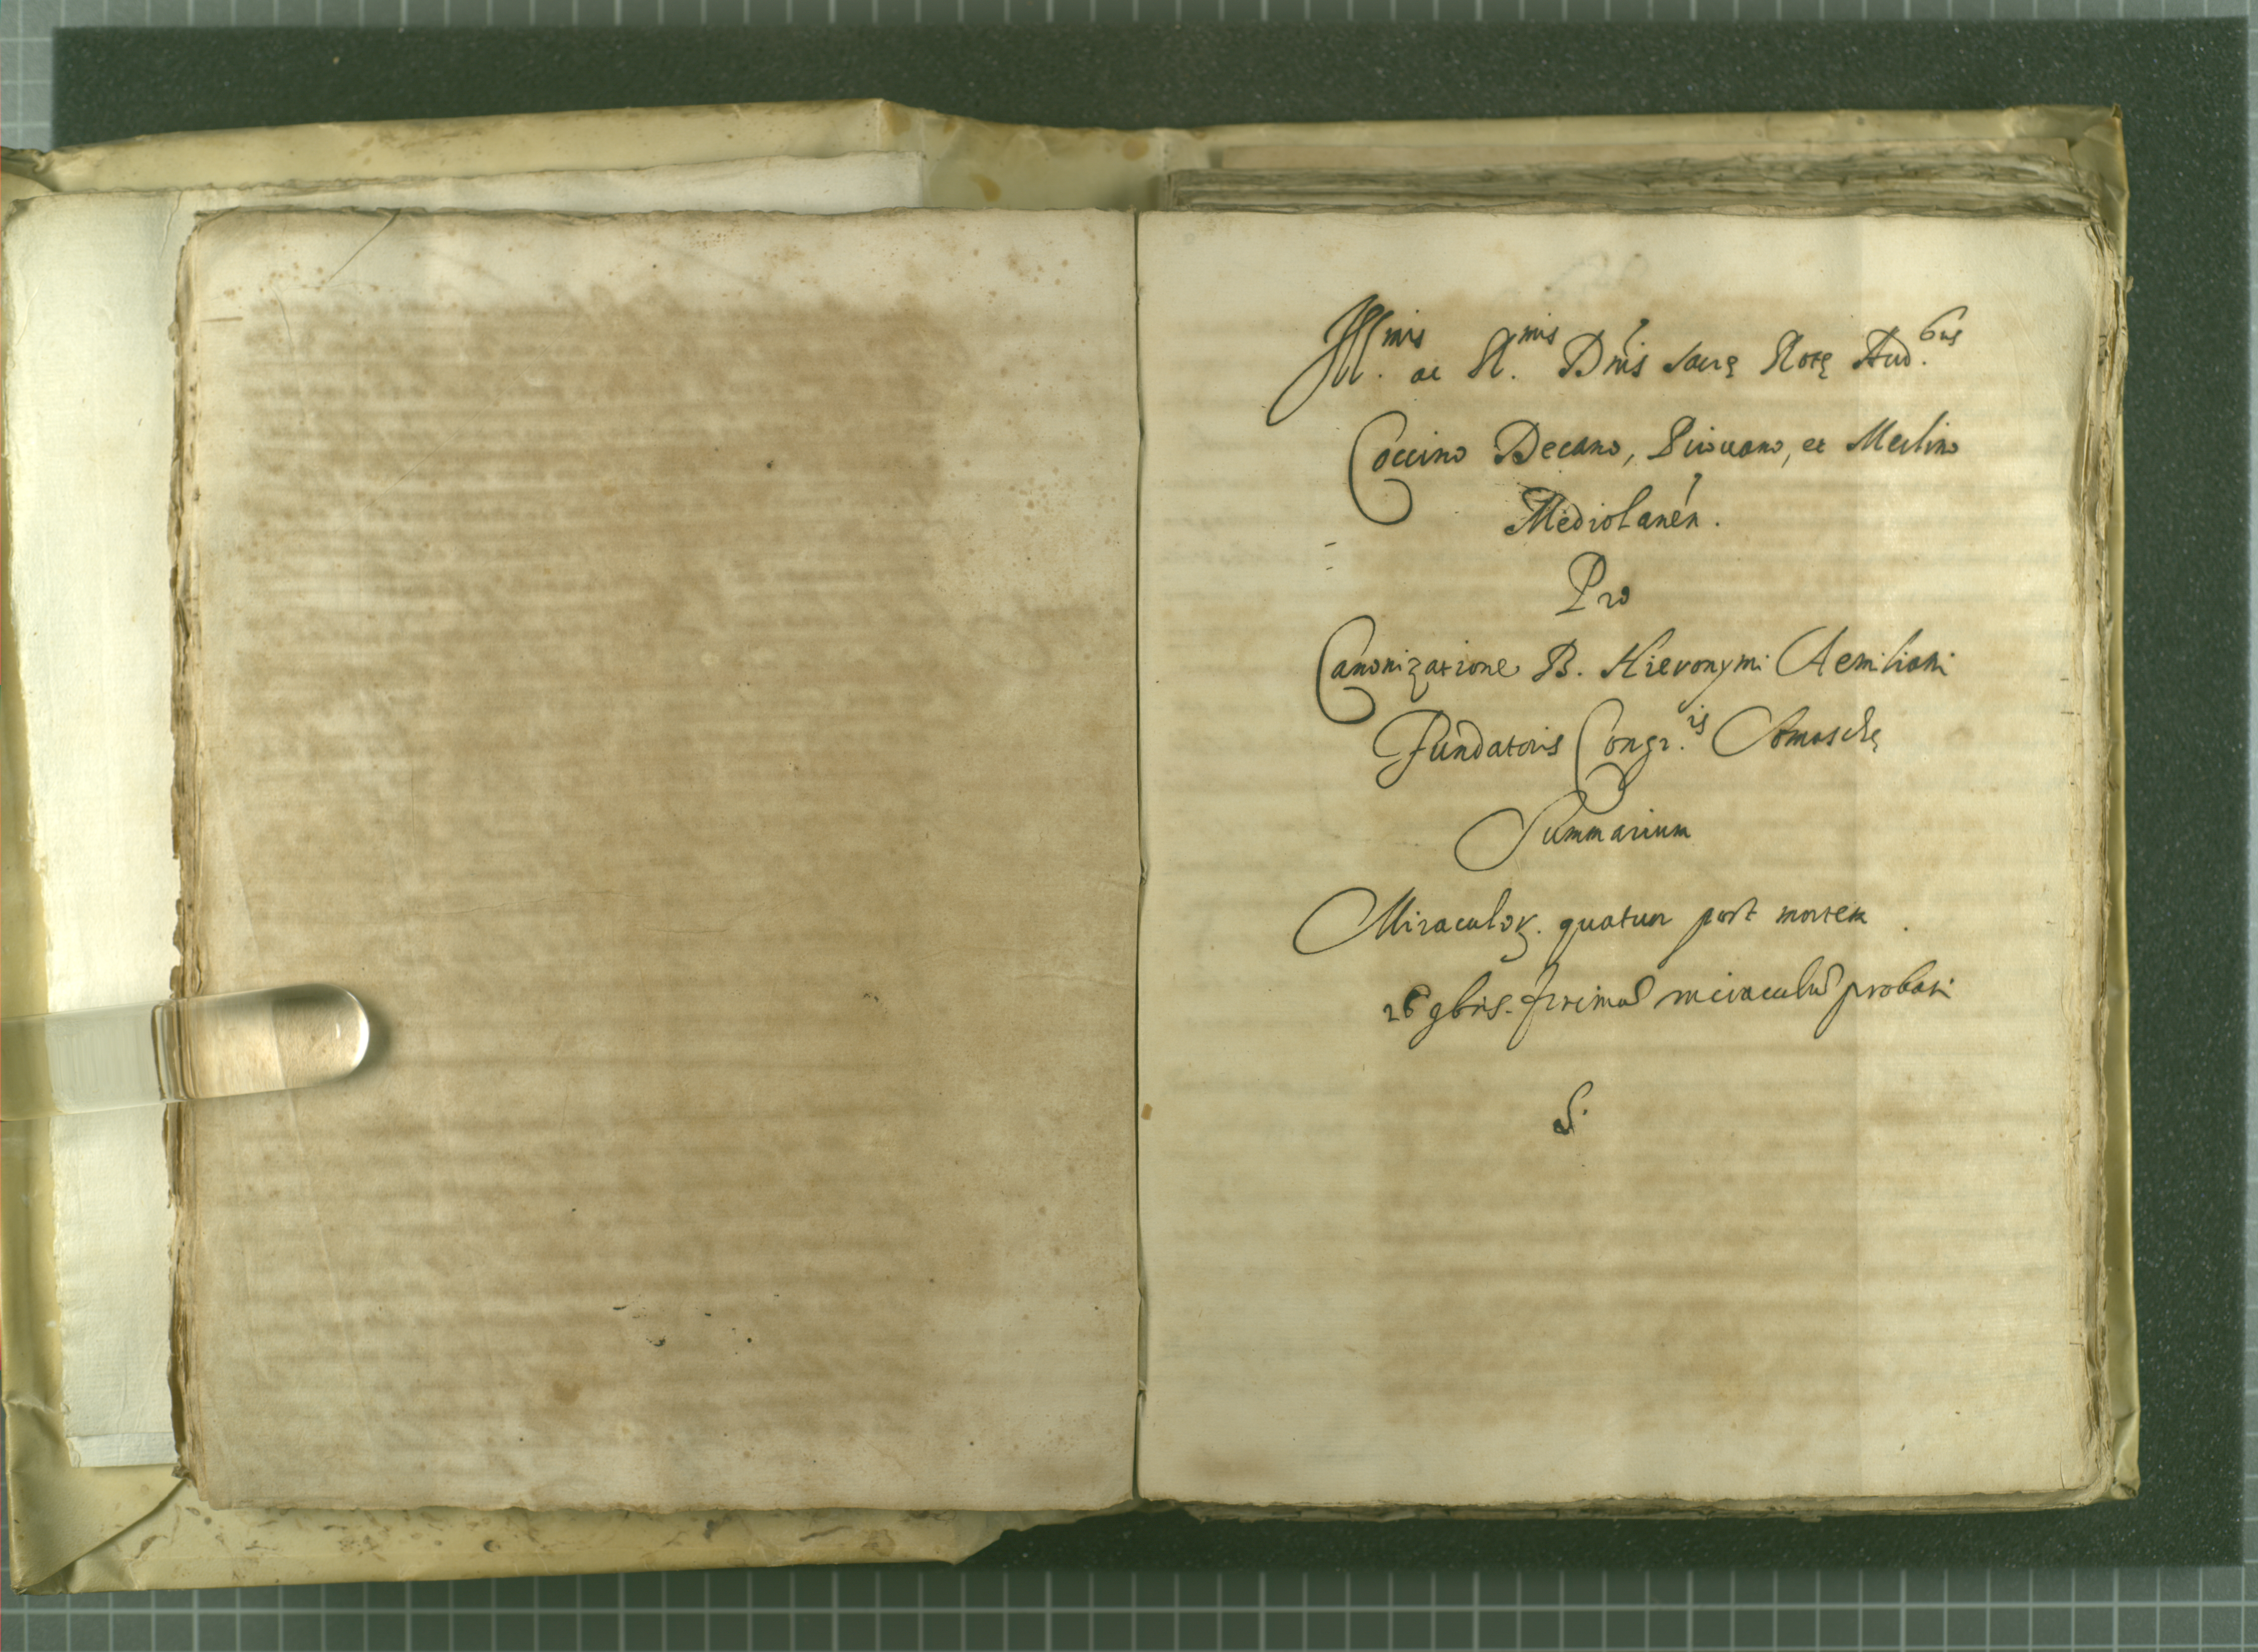 Ill.mis ac R.mis Dnis sacrę Rotę Aud.bus
Coccino Decano, Pirovano, et Merlino
Mediolanen.
Pro
Canonizatione B. Hieronymi Aemiliani
Fundatoris Congr.is Somaschę
Summarium
Miraculor. quatuor post mortem
26 9bris. primū miraculū probari
S.